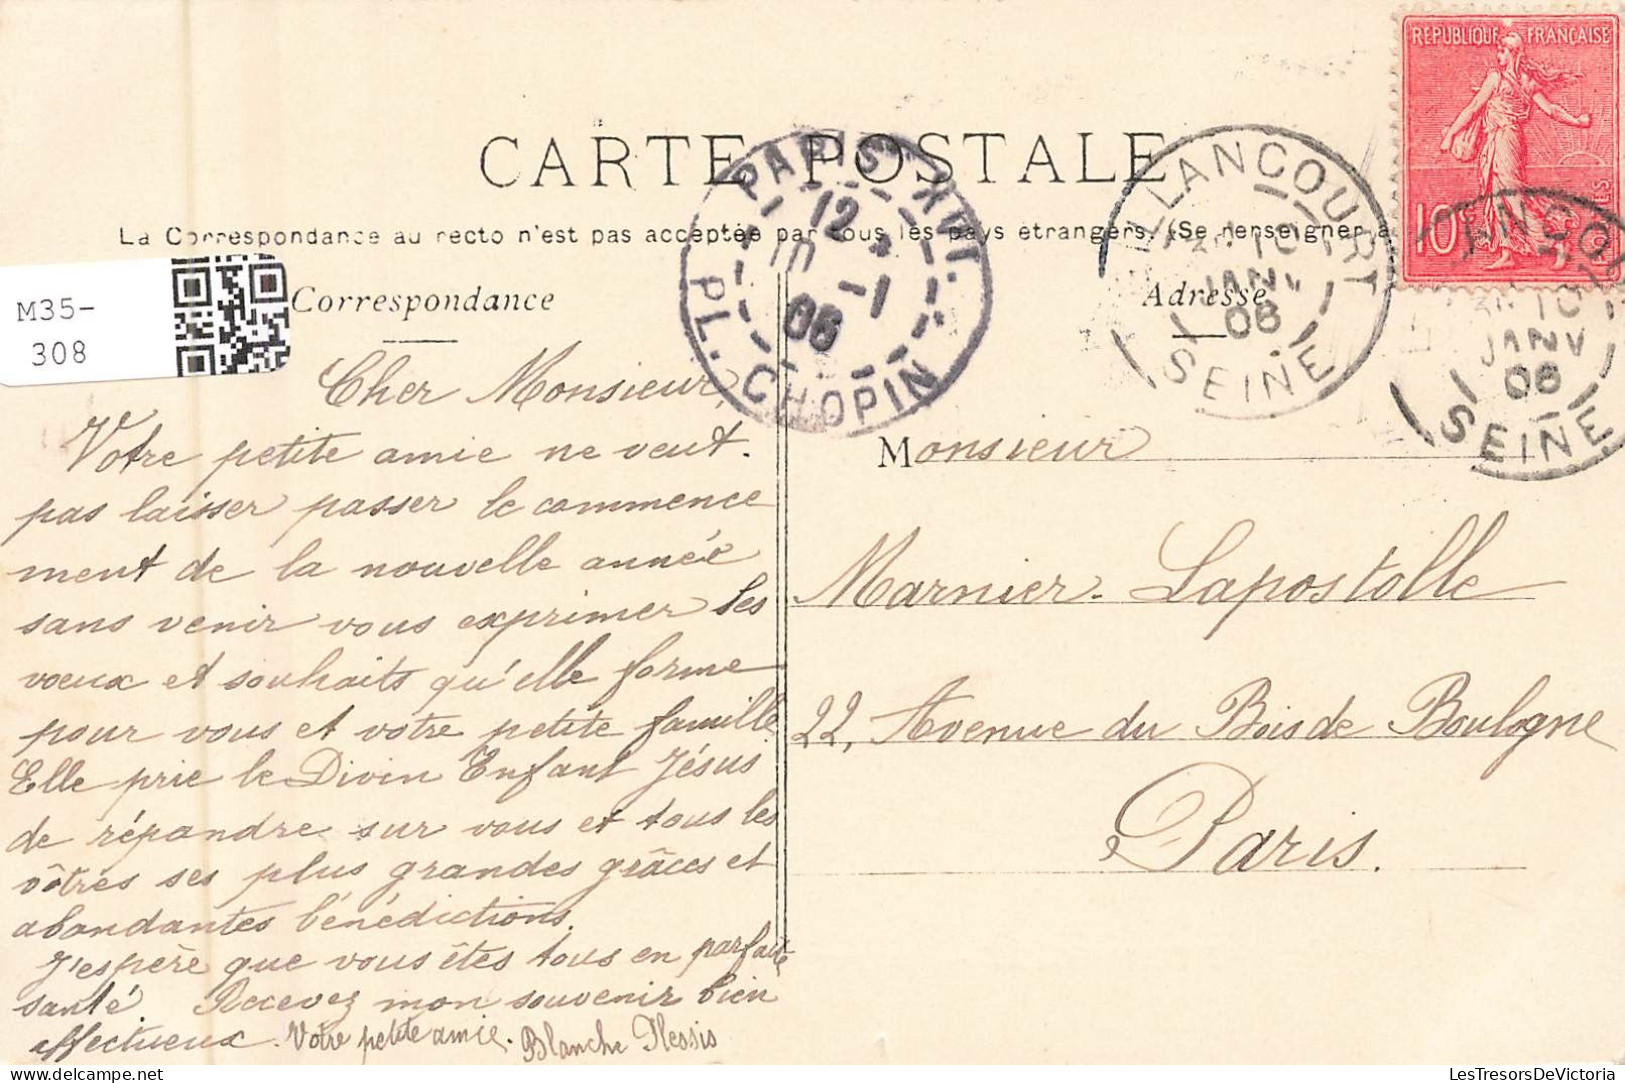 CARTE POSTALE
La Correspondance au recto n'est pas acceptée par tous les pays étrangers (Se renseigner à
M35-
308
Correspondance
Adresse
RÉPUBLIQUE FRANÇAISE
10c
PARIS XVI.
12
10 -1
06
PL. CHOPIN
LANCOURT
10
JANV
06
SEINE
ANCOU
10
JANV
06
SEINE
Cher Monsieur,
Votre petite amie ne veut.
pas laisser passer le commence
ment de la nouvelle année
sans venir vous exprimer les
voeux et souhaits qu'elle forme
pour vous et votre petite famille
Elle prie le Divin Enfant Jésus
de répandre sur vous et tous les
vôtres ses plus grandes grâces et
abondantes bénédictions.
J'espère que vous êtes tous en parfaite
santé. Recevez mon souvenir bien
affectueux. Votre petite amie. Blanche Plessis
Monsieur
Marnier-Lapostolle
22, Avenue du Bois de Boulogne
Paris.
LesTresorsDeVictoria
www.delcampe.net